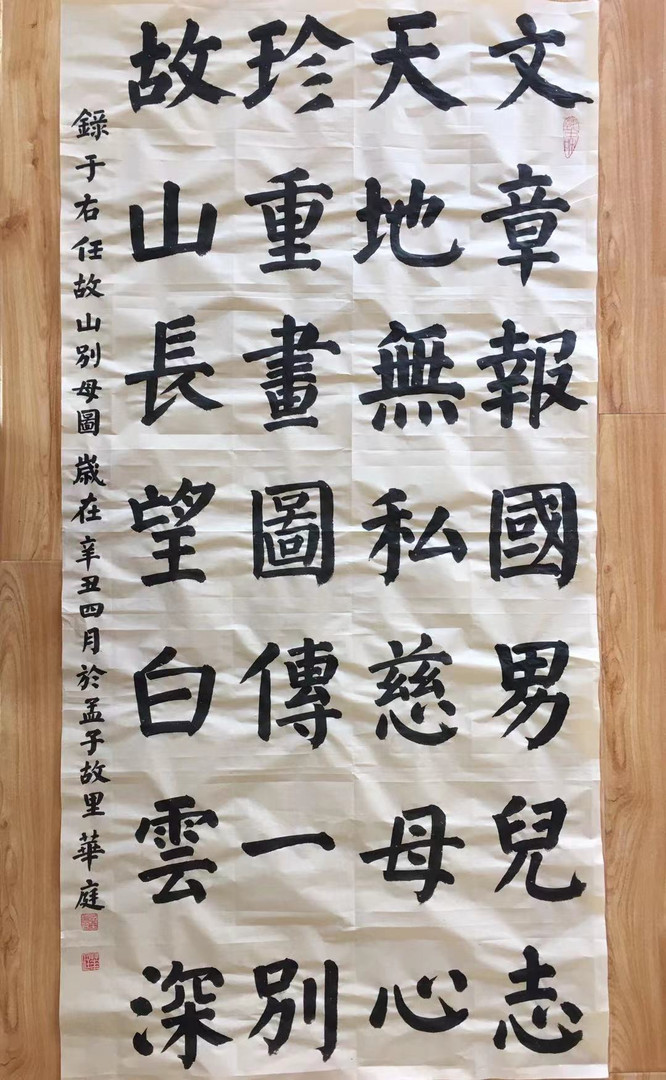 文章報國男兒志
天地無私慈母心
珍重畫圖傳一別
故山長望白雲深
錄于右任故山別母圖歲在辛丑四月於孟子故里華庭